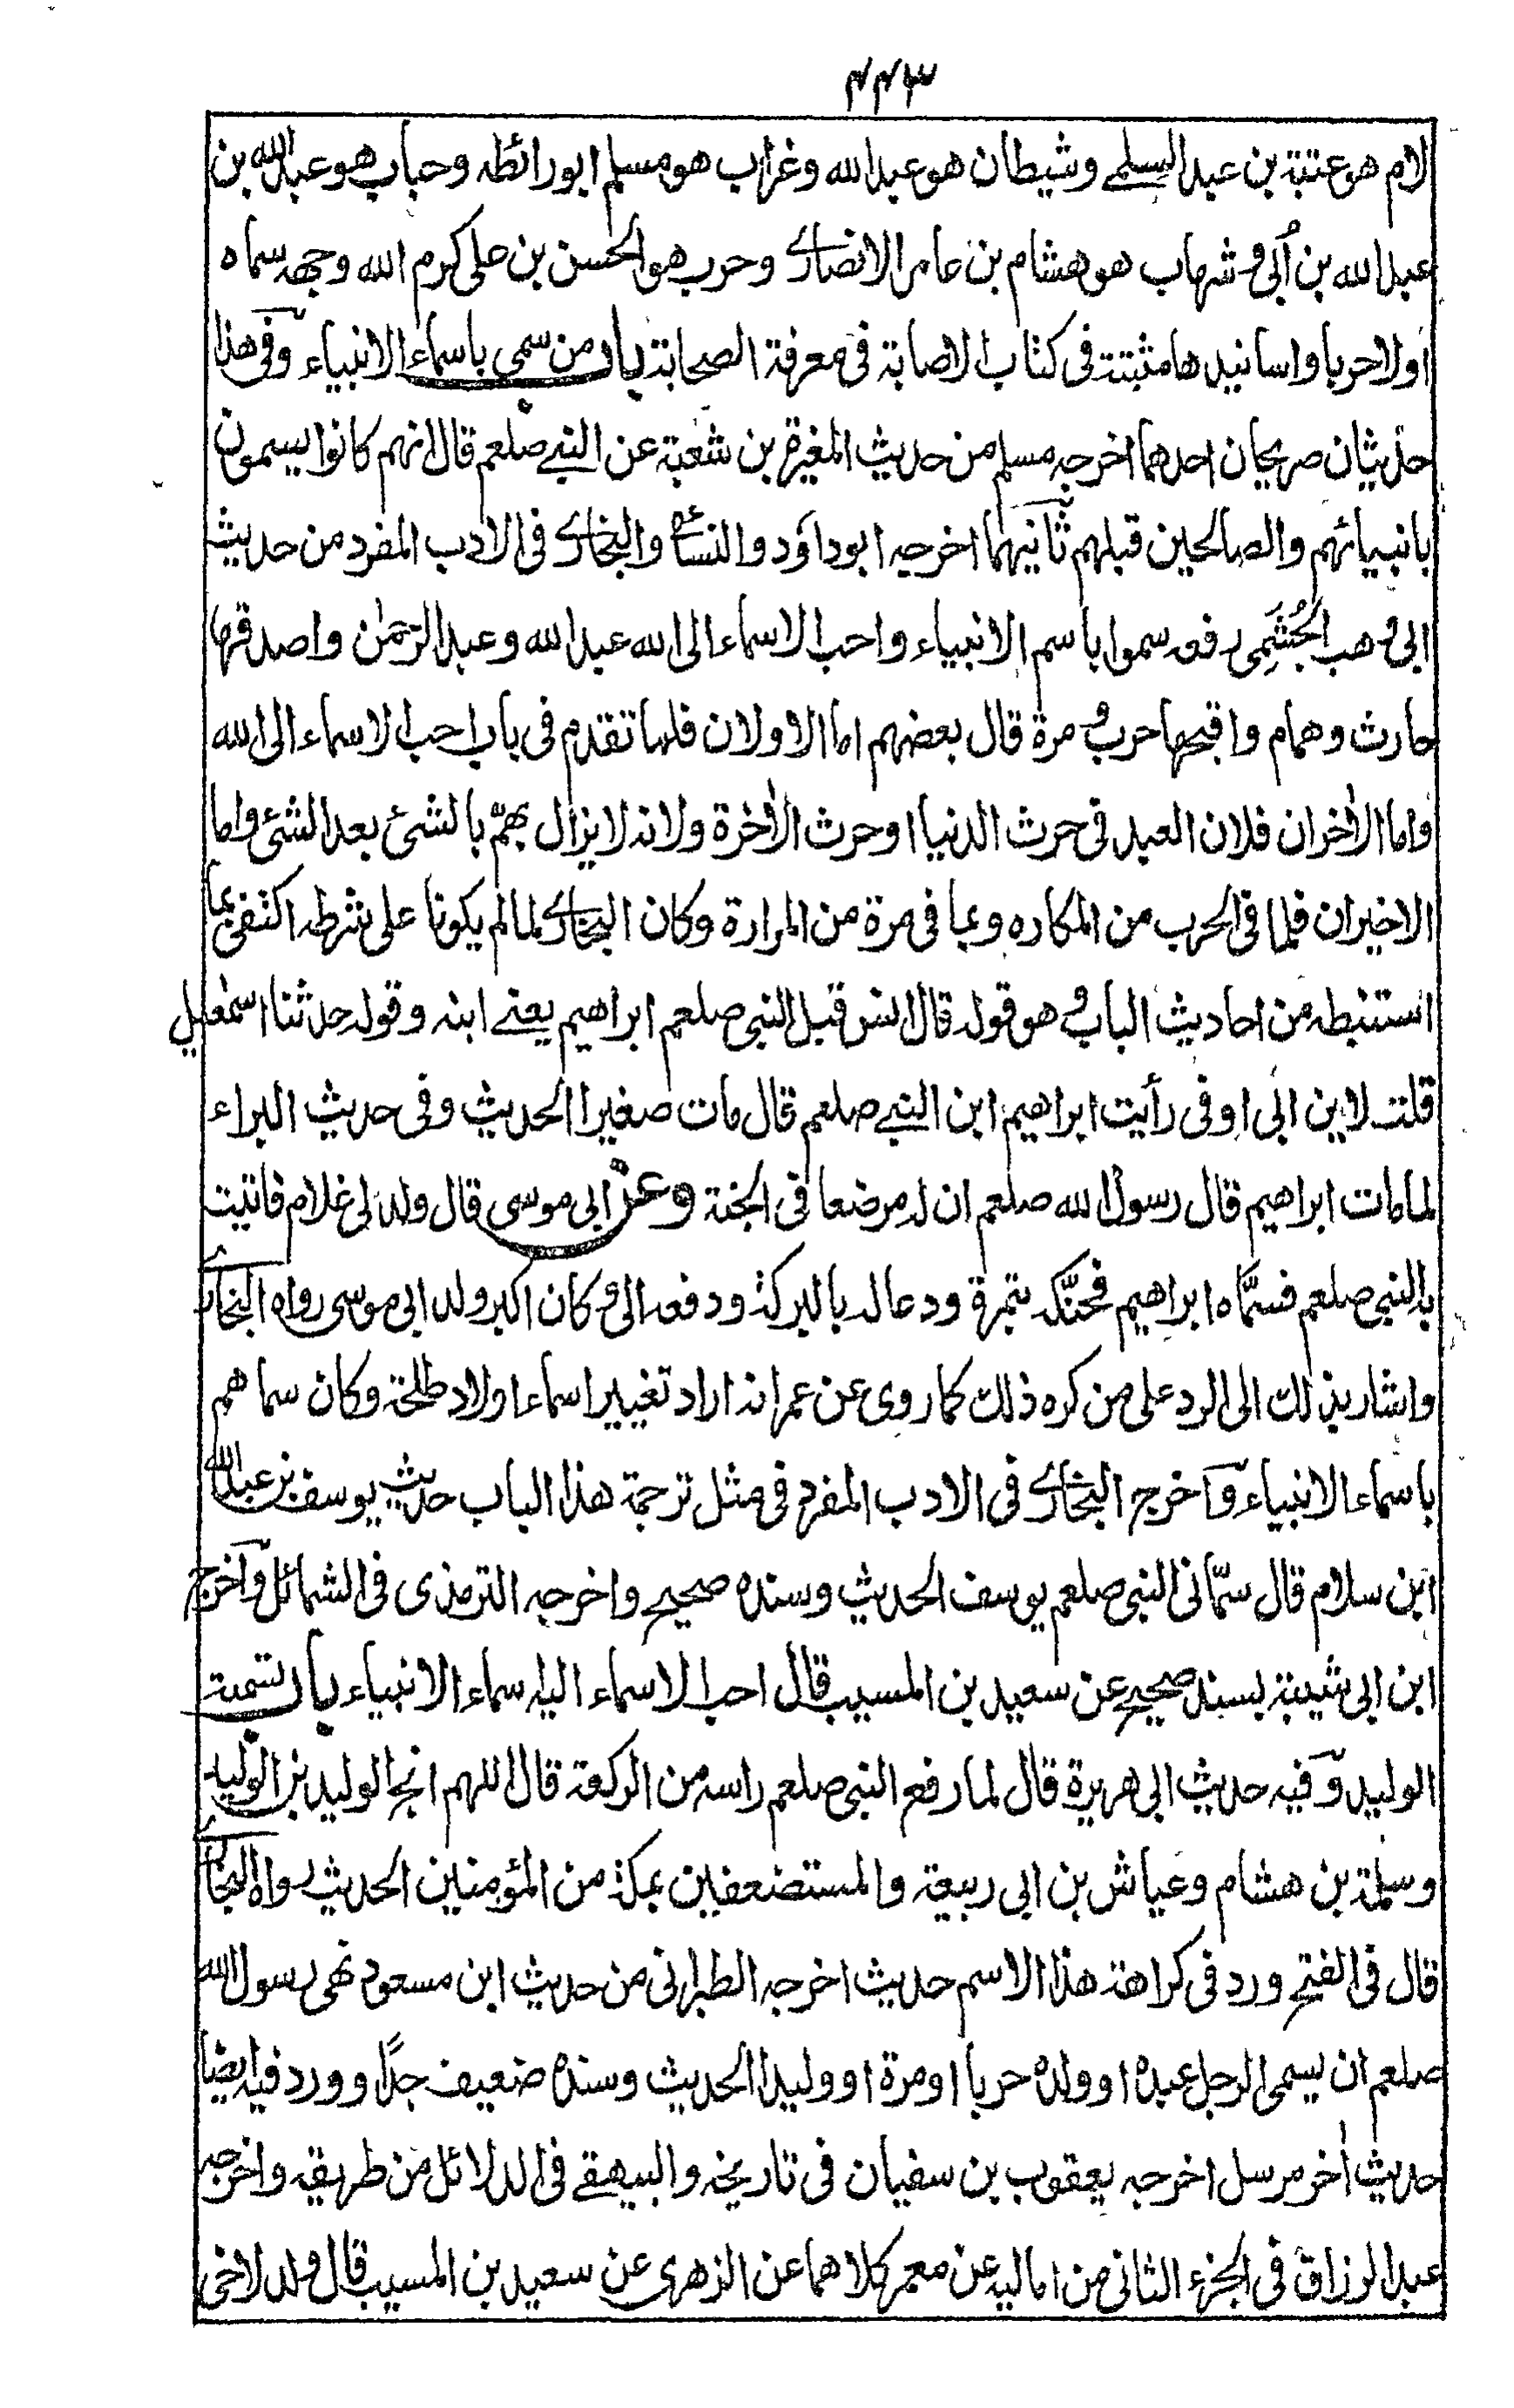 ٤٤٣
لام هو عتبة بن عبد السلمي وشيطان هو عبد الله وغراب هو مسلم ابو رائطه وحباب هو عبد الله بن
عبد الله بن أبي وشهاب هو هشام بن عامر الانصاري وحرب هو الحسن بن علي كرم الله وجهه سماه
اولا حربا واسانيدها مثبتة في كتاب الاصابة في معرفة الصحابة باب من سمى باسماء الانبياء وفي هذا
حديثان صريحان احدهما اخرجه مسلم من حديث المغيرة بن شعبة عن النبي صلعم قال انهم كانوا يسمون
بانبيائهم والصالحين قبلهم ثانيهما اخرجه ابو داؤد والنسائي والبخاري في الادب المفرد من حديث
ابي وهب الجُشَمِي رفعه سموا باسم الانبياء واحب الاسماء الى الله عبد الله وعبد الرحمٰن واصدقها
حارث وهمام واقبحها حرب ومرة قال بعضهم اما الاولان فلما تقدم في باب احب الاسماء الى الله
واما الاٰخران فلان العبد في حرث الدنيا او حرث الاٰخرة ولانه لا يزال يهمّ بالشئ بعد الشئ واما
الاخيران فلما في الحرب من المكاره وبما في مرة من المرارة وكان البخاري لما لم يكونا على شرطه اكتفى بما
استنبطه من احاديث الباب وهو قوله قال انس قبل النبي صلعم ابراهيم يعني ابنه وقوله حدثنا اسمٰعيل
قلت لابن ابي اوفى رأيت ابراهيم ابن النبي صلعم قال مات صغيرا الحديث وفي حديث البراء
لما مات ابراهيم قال رسول الله صلعم ان له مرضعا في الجنة وعن ابي موسى قال ولد لي غلام فاتيت
به النبي صلعم فسمّاه ابراهيم فحنّكه بتمرة ودعا له بالبركة ودفعه الي وكان اكبر ولد ابي موسى رواه البخاري
واشار بذلك الى الرد على من كره ذلك كما روى عن عمر انه اراد تغيير اسماء اولاد طلحة وكان سماهم
باسماء الانبياء وٓاخرج البخاري في الادب المفرد في مثل ترجمة هذا الباب حديث يوسف بن عبد الله
ابن سلام قال سمّاني النبي صلعم يوسف الحديث وسنده صحيح واخرجه الترمذي في الشمائل وٓاخرج
ابن ابي شيبة بسند صحيح عن سعيد بن المسيب قال احب الاسماء اليه اسماء الانبياء باب تسمية
الوليد وٓفيه حديث ابي هريرة قال لما رفع النبي صلعم راسه من الركعة قال اللهم انج الوليد بن الوليد
وسلمة بن هشام وعياش بن ابي ربيعة والمستضعفين بمكة من المؤمنين الحديث رواه البخاري
قال في الفتح ورد في كراهة هذا الاسم حديث اخرجه الطبراني من حديث ابن مسعود نهى رسول الله
صلعم ان يسمى الرجل عبده او ولده حربا او مرة او وليدا الحديث وسنده ضعيف جدًا وورد فيه ايضا
حديث اٰخر مرسل اخرجه يعقوب بن سفيان في تاريخه والبيهقي في الدلائل من طريقه واخرجه
عبد الرزاق في الجزء الثاني من اماليه عن معمر كلاهما عن الزهري عن سعيد بن المسيب قال ولد لاخي